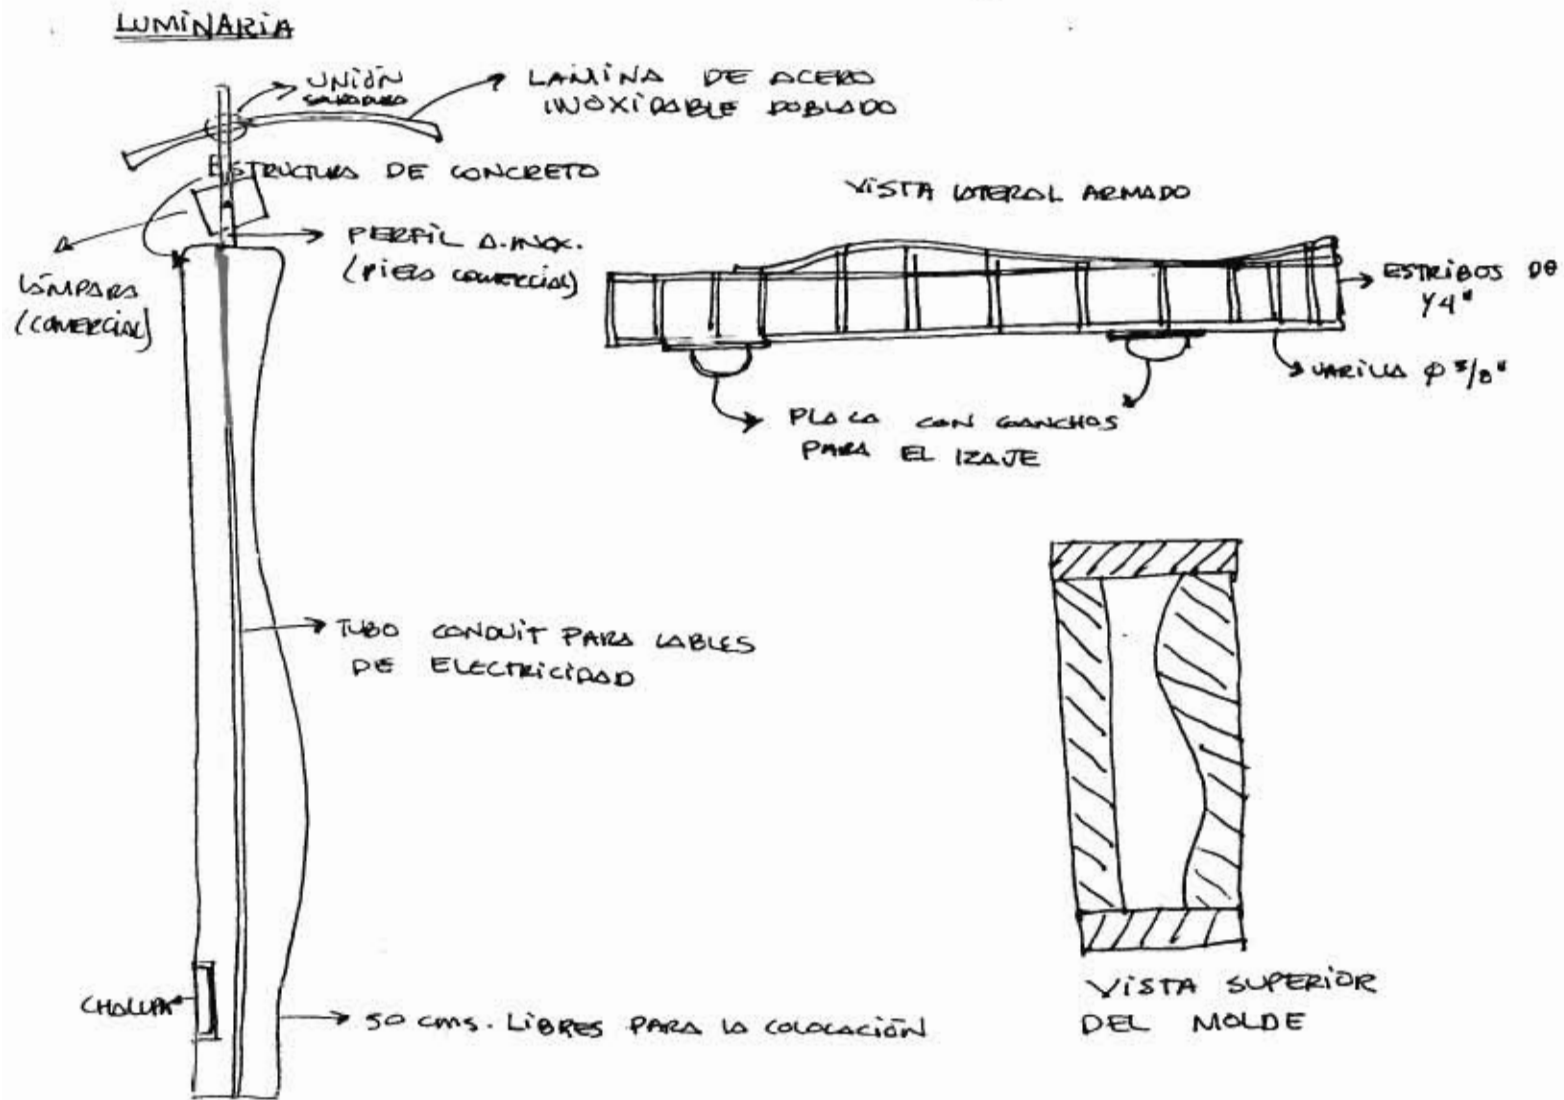 LUMINARIA
UNIÓN
SOLDADURA
LAMINA DE ACERO
INOXIDABLE DOBLADO
ESTRUCTURA DE CONCRETO
PERFIL A.INOX.
(PIEZA COMERCIAL)
LÁMPARA
(COMERCIAL)
TUBO CONDUIT PARA CABLES
DE ELECTRICIDAD
CHALUPA
50 cms. LIBRES PARA LA COLOCACIÓN
VISTA LATERAL ARMADO
ESTRIBOS DE
1/4"
VARILLA Ø 3/8"
PLACA CON GANCHOS
PARA EL IZAJE
VISTA SUPERIOR
DEL MOLDE